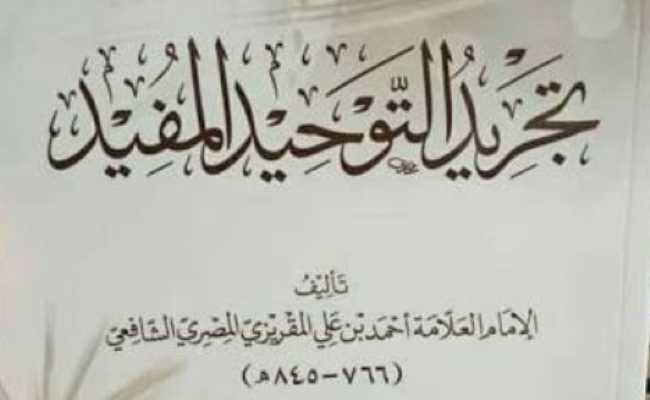 تجريد التوحيد المفيد
تأليف
الإمام العلامة أحمد بن علي المقريزي المصري الشافعي
(٧٦٦-٨٤٥هـ)